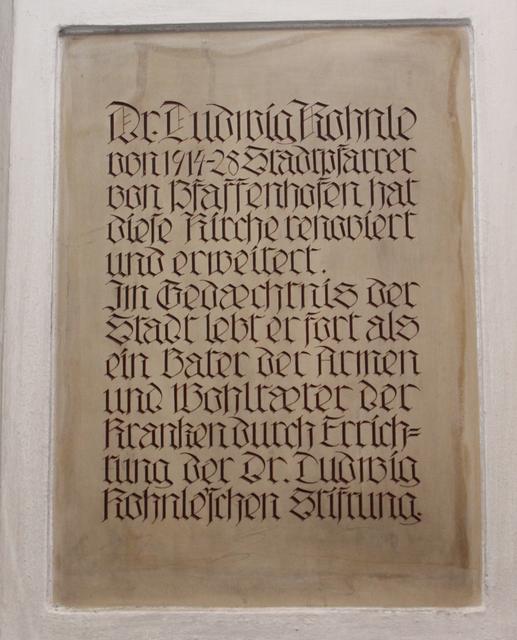 Dr. Ludwig Kohnle
von 1914-28 Stadtpfarrer
von Pfaffenhofen hat
diese Kirche renoviert
und erweitert.
Im Gedæchtnis der
Stadt lebt er fort als
ein Vater der Armen
und Wohltæter der
Kranken durch Errich=
tung der Dr. Ludwig
Kohnle'schen Stiftung.